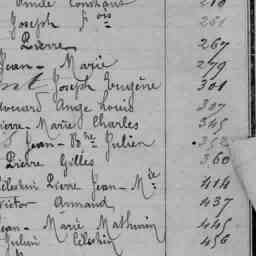 Aimée Constant 210
Joseph Fois 261
Pierre 267
Jean-Marie 279
Joseph Eugène 301
Edouard Ange Louis 307
Pierre-Marie Charles 345
Jean-Bte Julien 352
Pierre Gilles 360
Célestin Pierre Jean-Mie 414
Victor Armand 437
Jean-Marie Mathurin 445
Julien Célestin 456